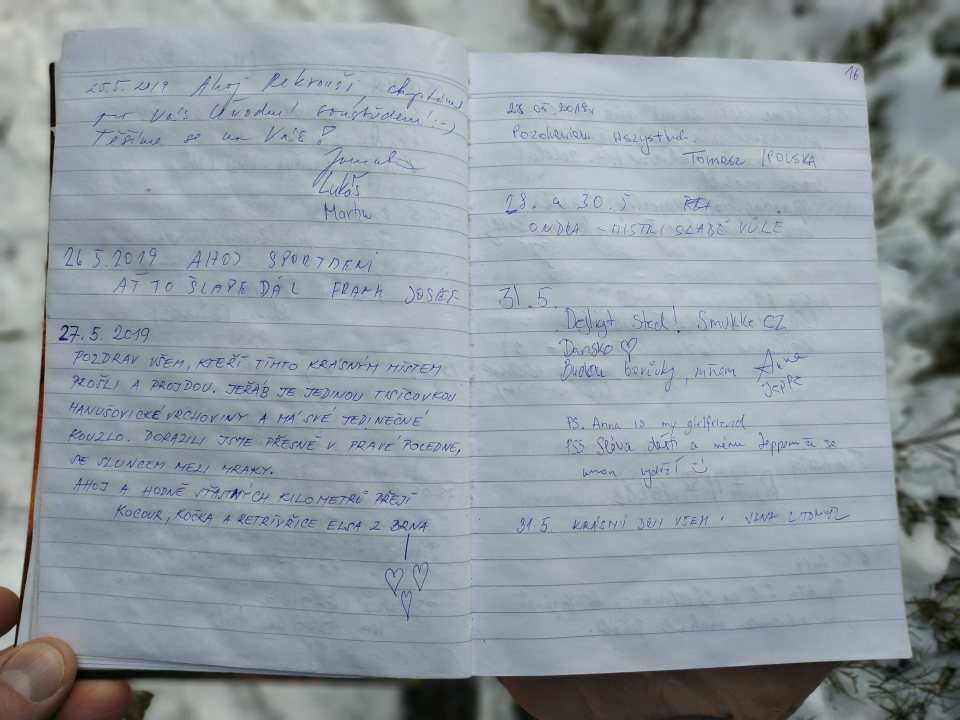 25.5.2019 Ahoj Rekrouši,
pro Vás Úvodní soustředění! :-)
Těšíme se na Vás!
Lukáš
Martin
26.5.2019 AHOJ
AŤ TO ŠLAPE DÁL FRANK JOSEF
27.5.2019
POZDRAV VŠEM, KTEŘÍ TÍMTO KRÁSNÝM MÍSTEM
PROŠLI A PROJDOU. JEŘÁB JE JEDINOU TISÍCOVKOU
HANUŠOVICKÉ VRCHOVINY A MÁ SVÉ JEDINEČNÉ
KOUZLO. DORAZILI JSME PŘESNĚ V PRAVÉ POLEDNE,
SE SLUNCEM MEZI MRAKY.
AHOJ A HODNĚ ŠŤASTNÝCH KILOMETRŮ PŘEJÍ
KOCOUR, KOČKA A RETRÍVŘICE ELSA Z BRNA
16
23.05.2019r
Wszystkich.
Tomasz /POLSKA
28. a 30.5
ONDRA - MISTŘI SLABÉ VŮLE
31.5.
Dejligt sted! Smukke CZ
Dansko ♡
Budou borůvky, mňam Anna
Jeppe
PS. Anna is my girlfriend
PSS Sláva dešti a mému Jeppemu že se
mnou vydrží
31.5. KRÁSNÝ DEN VŠEM. JANA LITOMYŠL